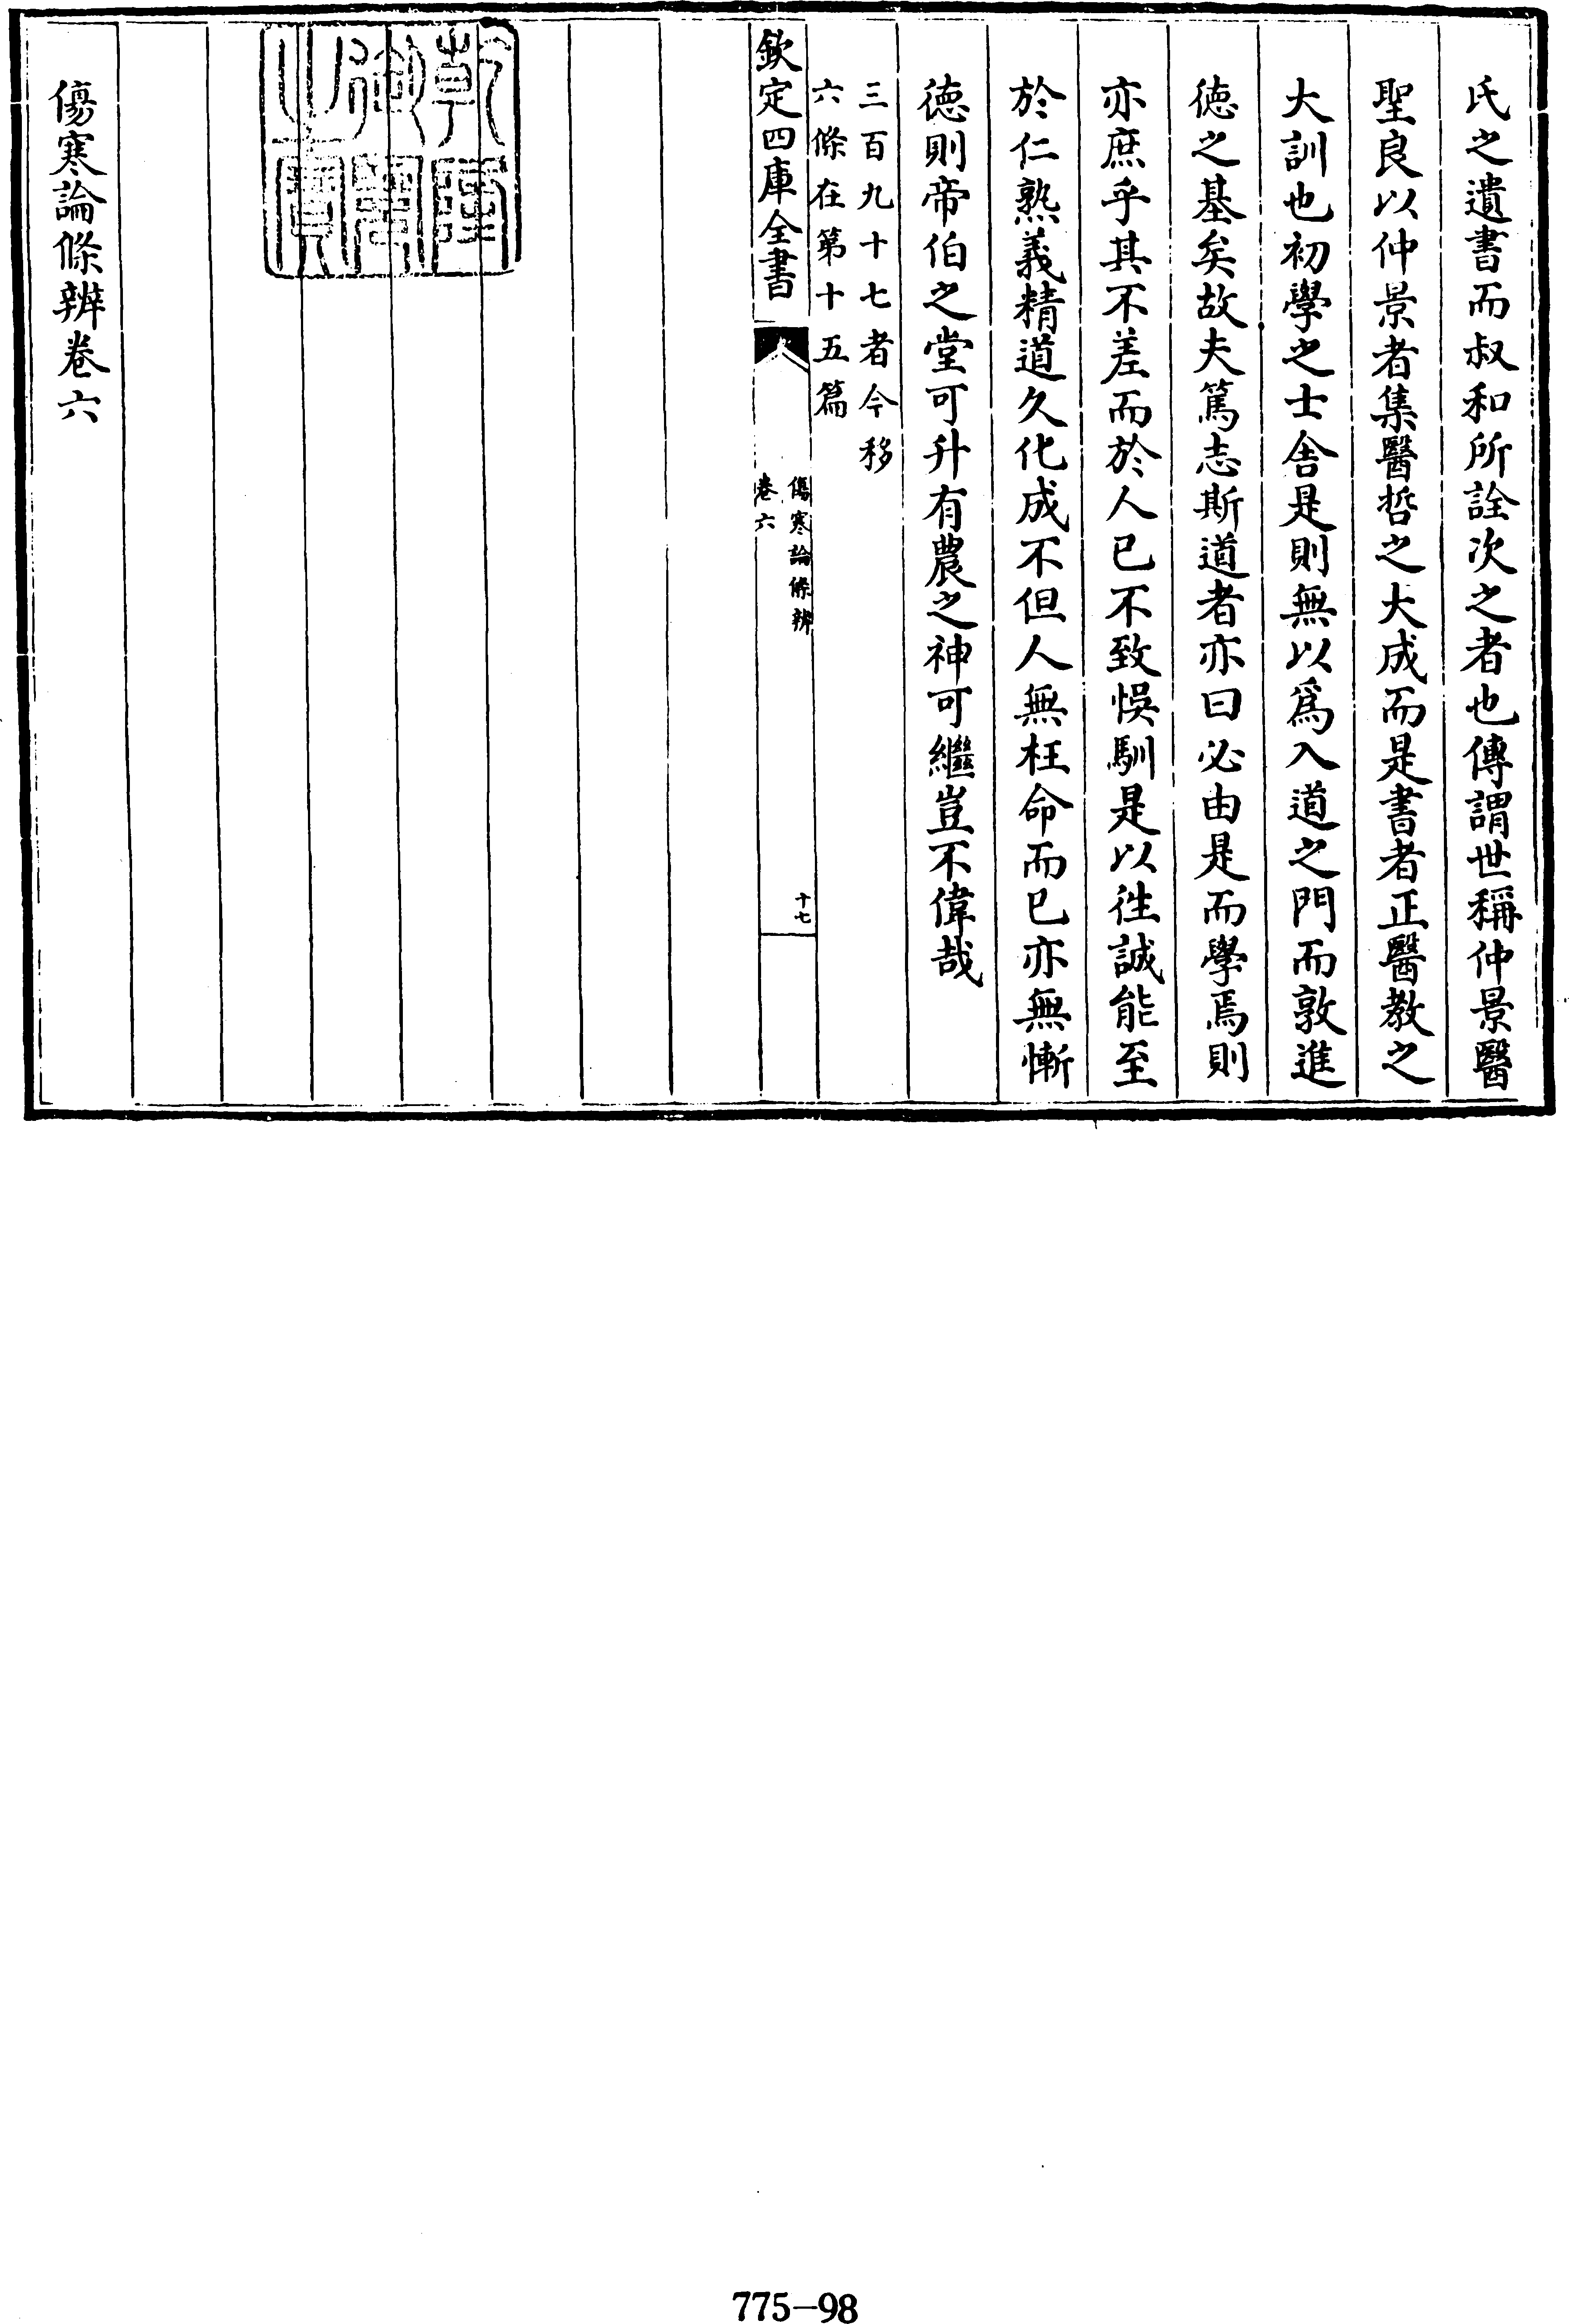 氏之遺書而叔和所詮次之者也傳謂世稱仲景醫
聖良以仲景者集醫哲之大成而是書者正醫教之
大訓也初學之士舍是則無以爲入道之門而敦進
德之基矣故夫篤志斯道者亦曰必由是而學焉則
亦庶乎其不差而於人已不致悞馴是以徃誠能至
於仁熟義精道久化成不但人無枉命而已亦無慚
德則帝伯之堂可升有農之神可繼豈不偉哉
三百九十七者今移
六條在第十五篇
欽定四庫全書
傷寒論條辨
卷六
十七
乾隆御覽之寶
傷寒論條辨卷六
775-98